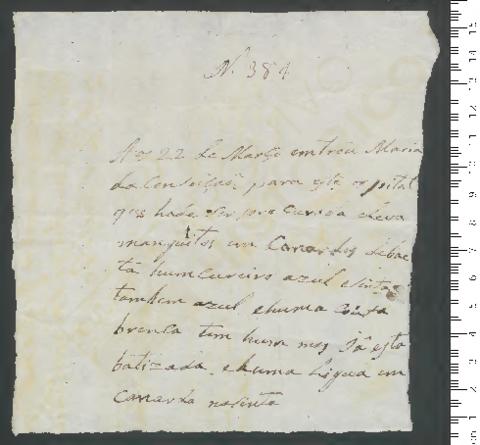 N. 384
Aos 22 de Março entrou Maria
da Conseiçaõ para este ospital
que hade ser para Curada e leva
manguitos em Canardos de bae
tá hum Cueiro azul e sinta
tambem azul e huma Couta
branca tem hum mes Já esta
batizada. e huma ligua em
Canarda na sinta